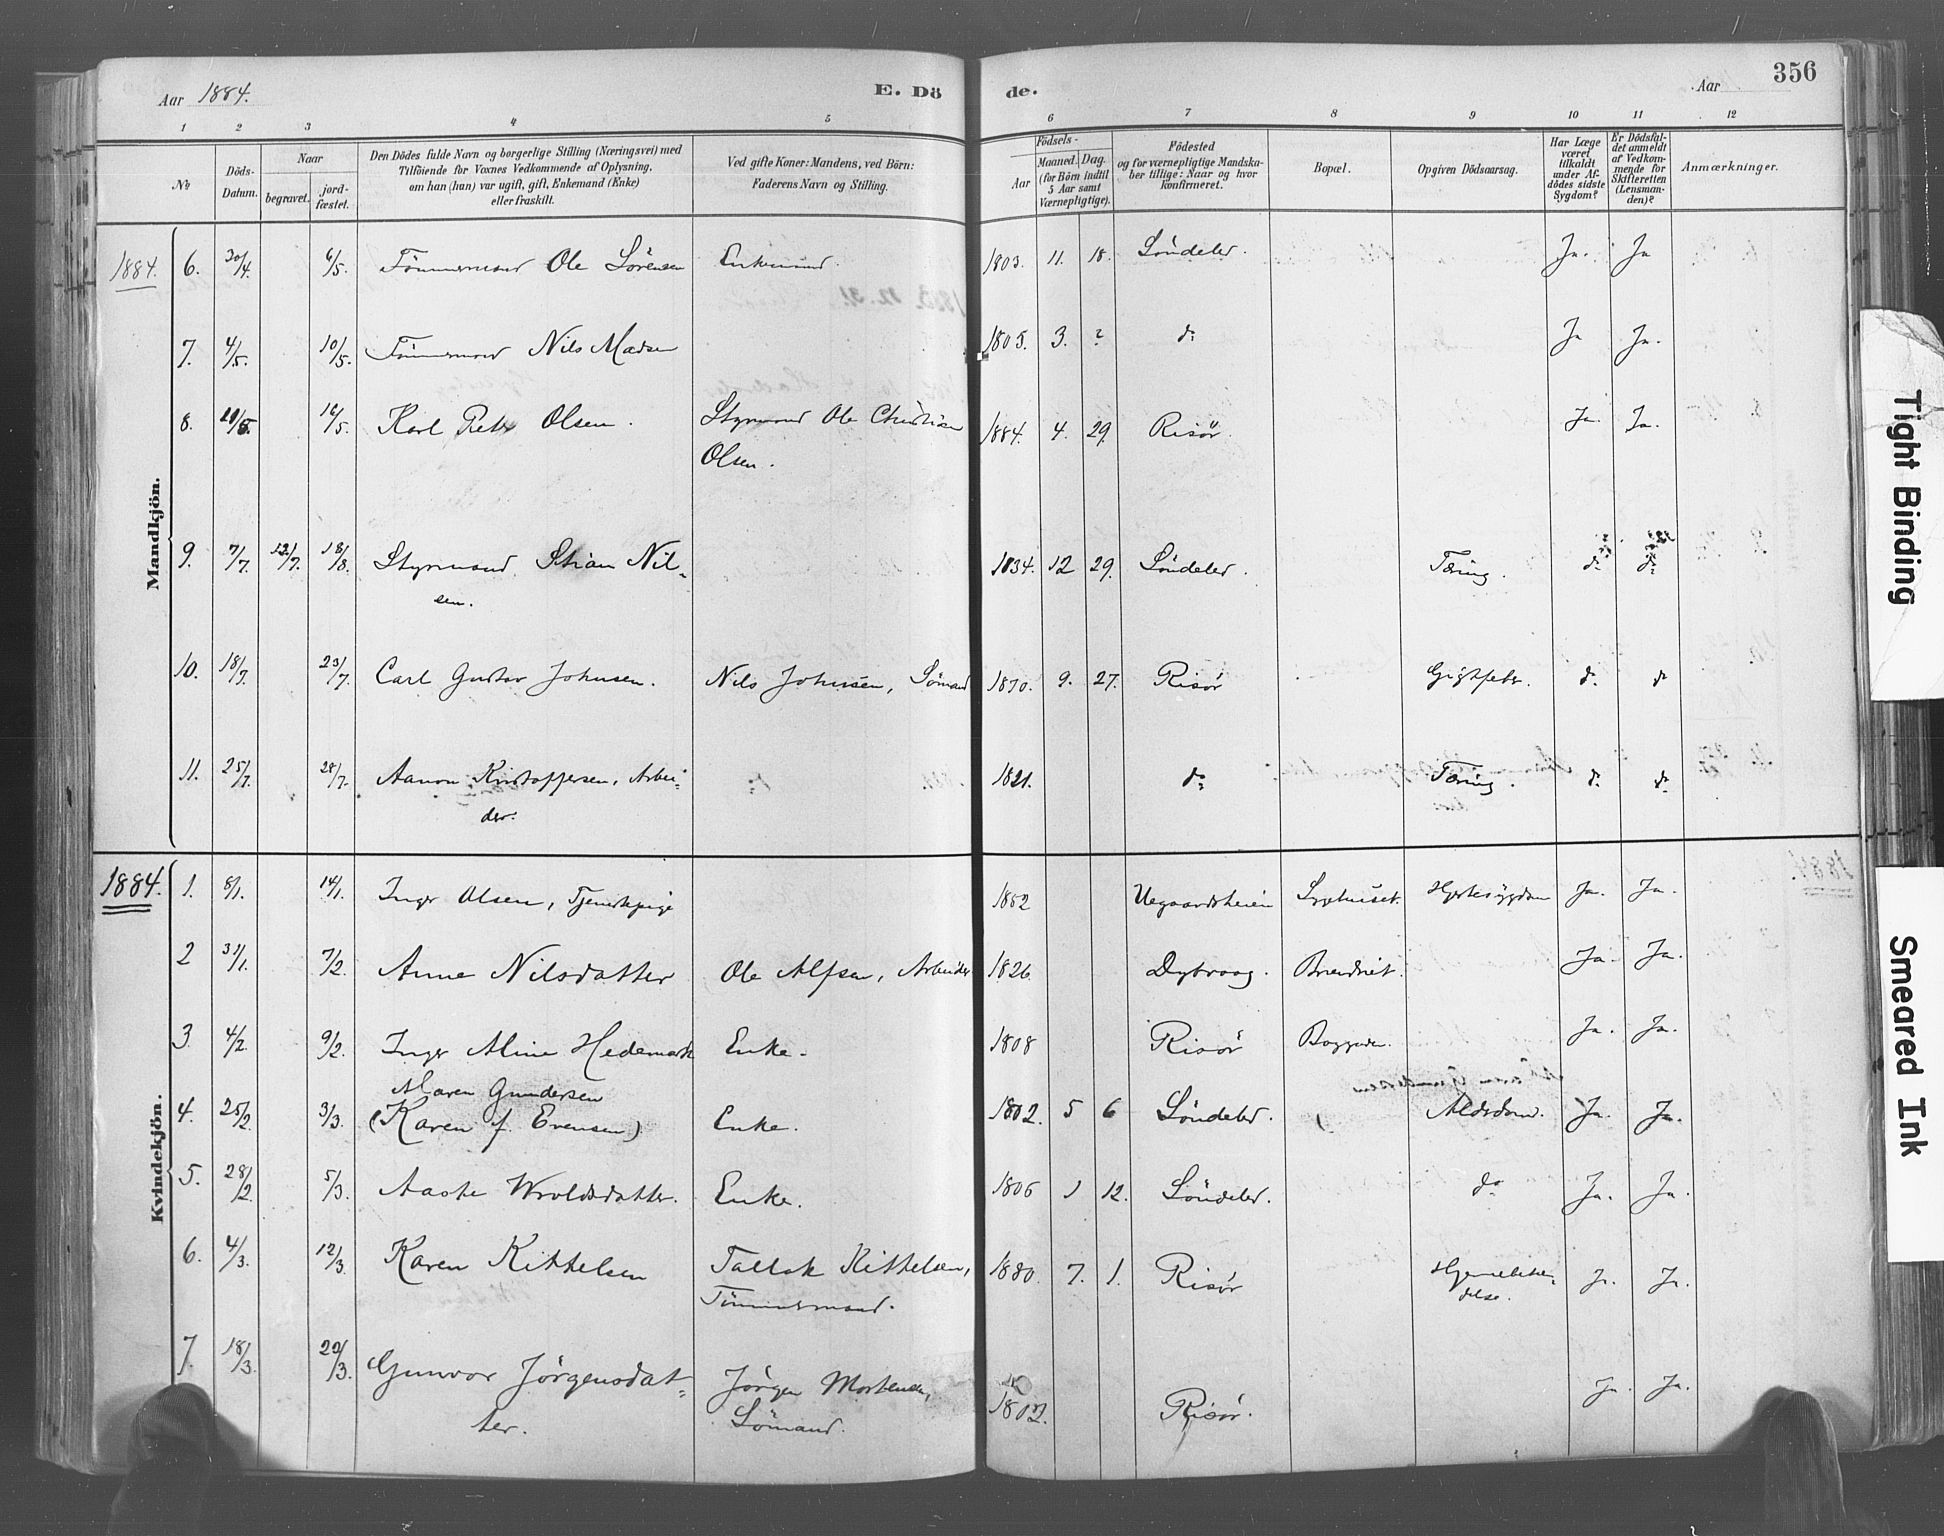 Aar 1884.
E. Dö
de.
Aar
356
1 2 3 4 5 6 7 8 9 10 11 12
No
Döds-Datum.
Naar
begravet.
jord-fæstet.
Den Dödes fulde Navn og borgerlige Stilling (Næringsvei) med
Tilföiende for Voxnes Vedkommende af Oplysning,
om han (han) var ugift, gift, Enkemand (Enke)
eller fraskilt.
Ved gifte Koner: Mandens, ved Börn:
Faderens Navn og Stilling.
Födsels-
Aar
Maaned. Dag.
(for Börn indtil
5 Aar samt
Værnepligtige).
Födested
og for værnepligtige Mandska-
ber tillige: Naar og hvor
konfirmeret.
Bopæl.
Opgiven Dödsaarsag.
Har Læge
været
tilkaldt
under Af-
dödes sidste
Sygdom?
Er Dödsfal-
det anmeldt
af Vedkom-
mende for
Skifteretten
(Lensman-
den)?
Anmærkninger.
Mandkjön.
1884. 6. 30/4. 6/5. Tömmermand Ole Sörensen Enkemand. 1803. 11. 18. Söndeled. Ja. Ja
7. 4/5. 10/5. Tömmermand Nils Madsen 1805. 3. ? do Ja Ja.
8. 10/5. 16/5. Karl Peter Olsen. Styrmand Ole Christian 1884. 4. 29. Risör. Ja. Ja.
Olsen.
9. 7/7. 12/7. 18/8. Styrmand Stian Nil- 1834. 12 29. Söndeled. Tæring. do do
sen.
10. 18/7. 23/7. Carl Gustav Johnsen. Nils Johnsen, Sömand 1870. 9. 27. Risör Gigtfeber. do do
11. 25/7. 28/7. Aanon Kristoffersen, Arbei- 1821. do Tæring. do do
der.
Kvindekjön.
1884. 1. 8/1. 14/1. Inger Olsen, Tjenestepige 1852 Vegaardsheien Sygehuset. Hjertesygdom Ja. Ja.
2 31/1. 7/2. Anne Nilsdatter Ole Alfsen, Arbeider 1826. Dybvaag. Ja. Ja.
3 4/2. 9/2. Inger Aline Hedemark Enke. 1808 Risör Ja. Ja.
Maren Gundersen
4. 25/2. 3/3. (Karen f. Evensen) Enke. 1802. 5 6 Söndeled. Alderdom. Ja. Ja.
5. 28/2. 5/3. Aaste Wroldsdatter. Enke. 1806 1 12. Söndeled. do Ja. Ja.
6. 4/3. 12/3. Karen Kittelsen Tallak Kittelsen, 1880. 7. 1. Risör Hjernebetæn- Ja. Ja.
Tömmermand. delse.
7. 18/3. 22/3. Gunvor Jörgensdat- Jörgen Mortensen, Risör. Ja. Ja.
ter. Sömand.
Tight Binding
Smeared Ink